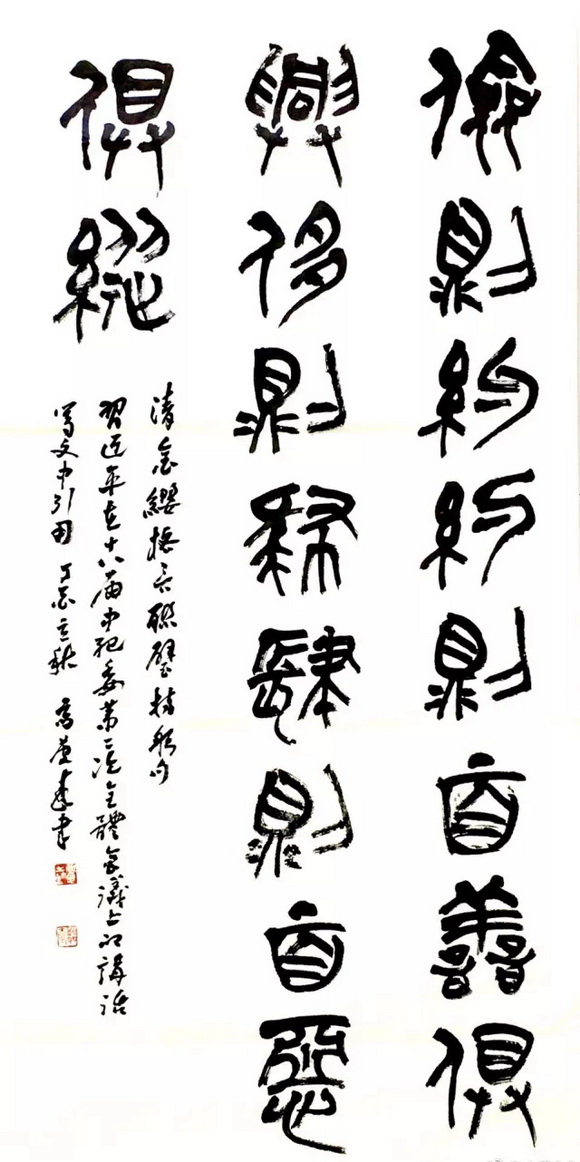 儉則約約則百善俱
興侈則肆肆則百惡
俱縱
清金纓格言聯璧持躬句
習近平在十八届中紀委第二次全體會議上的講話
文中引用 丁酉立秋